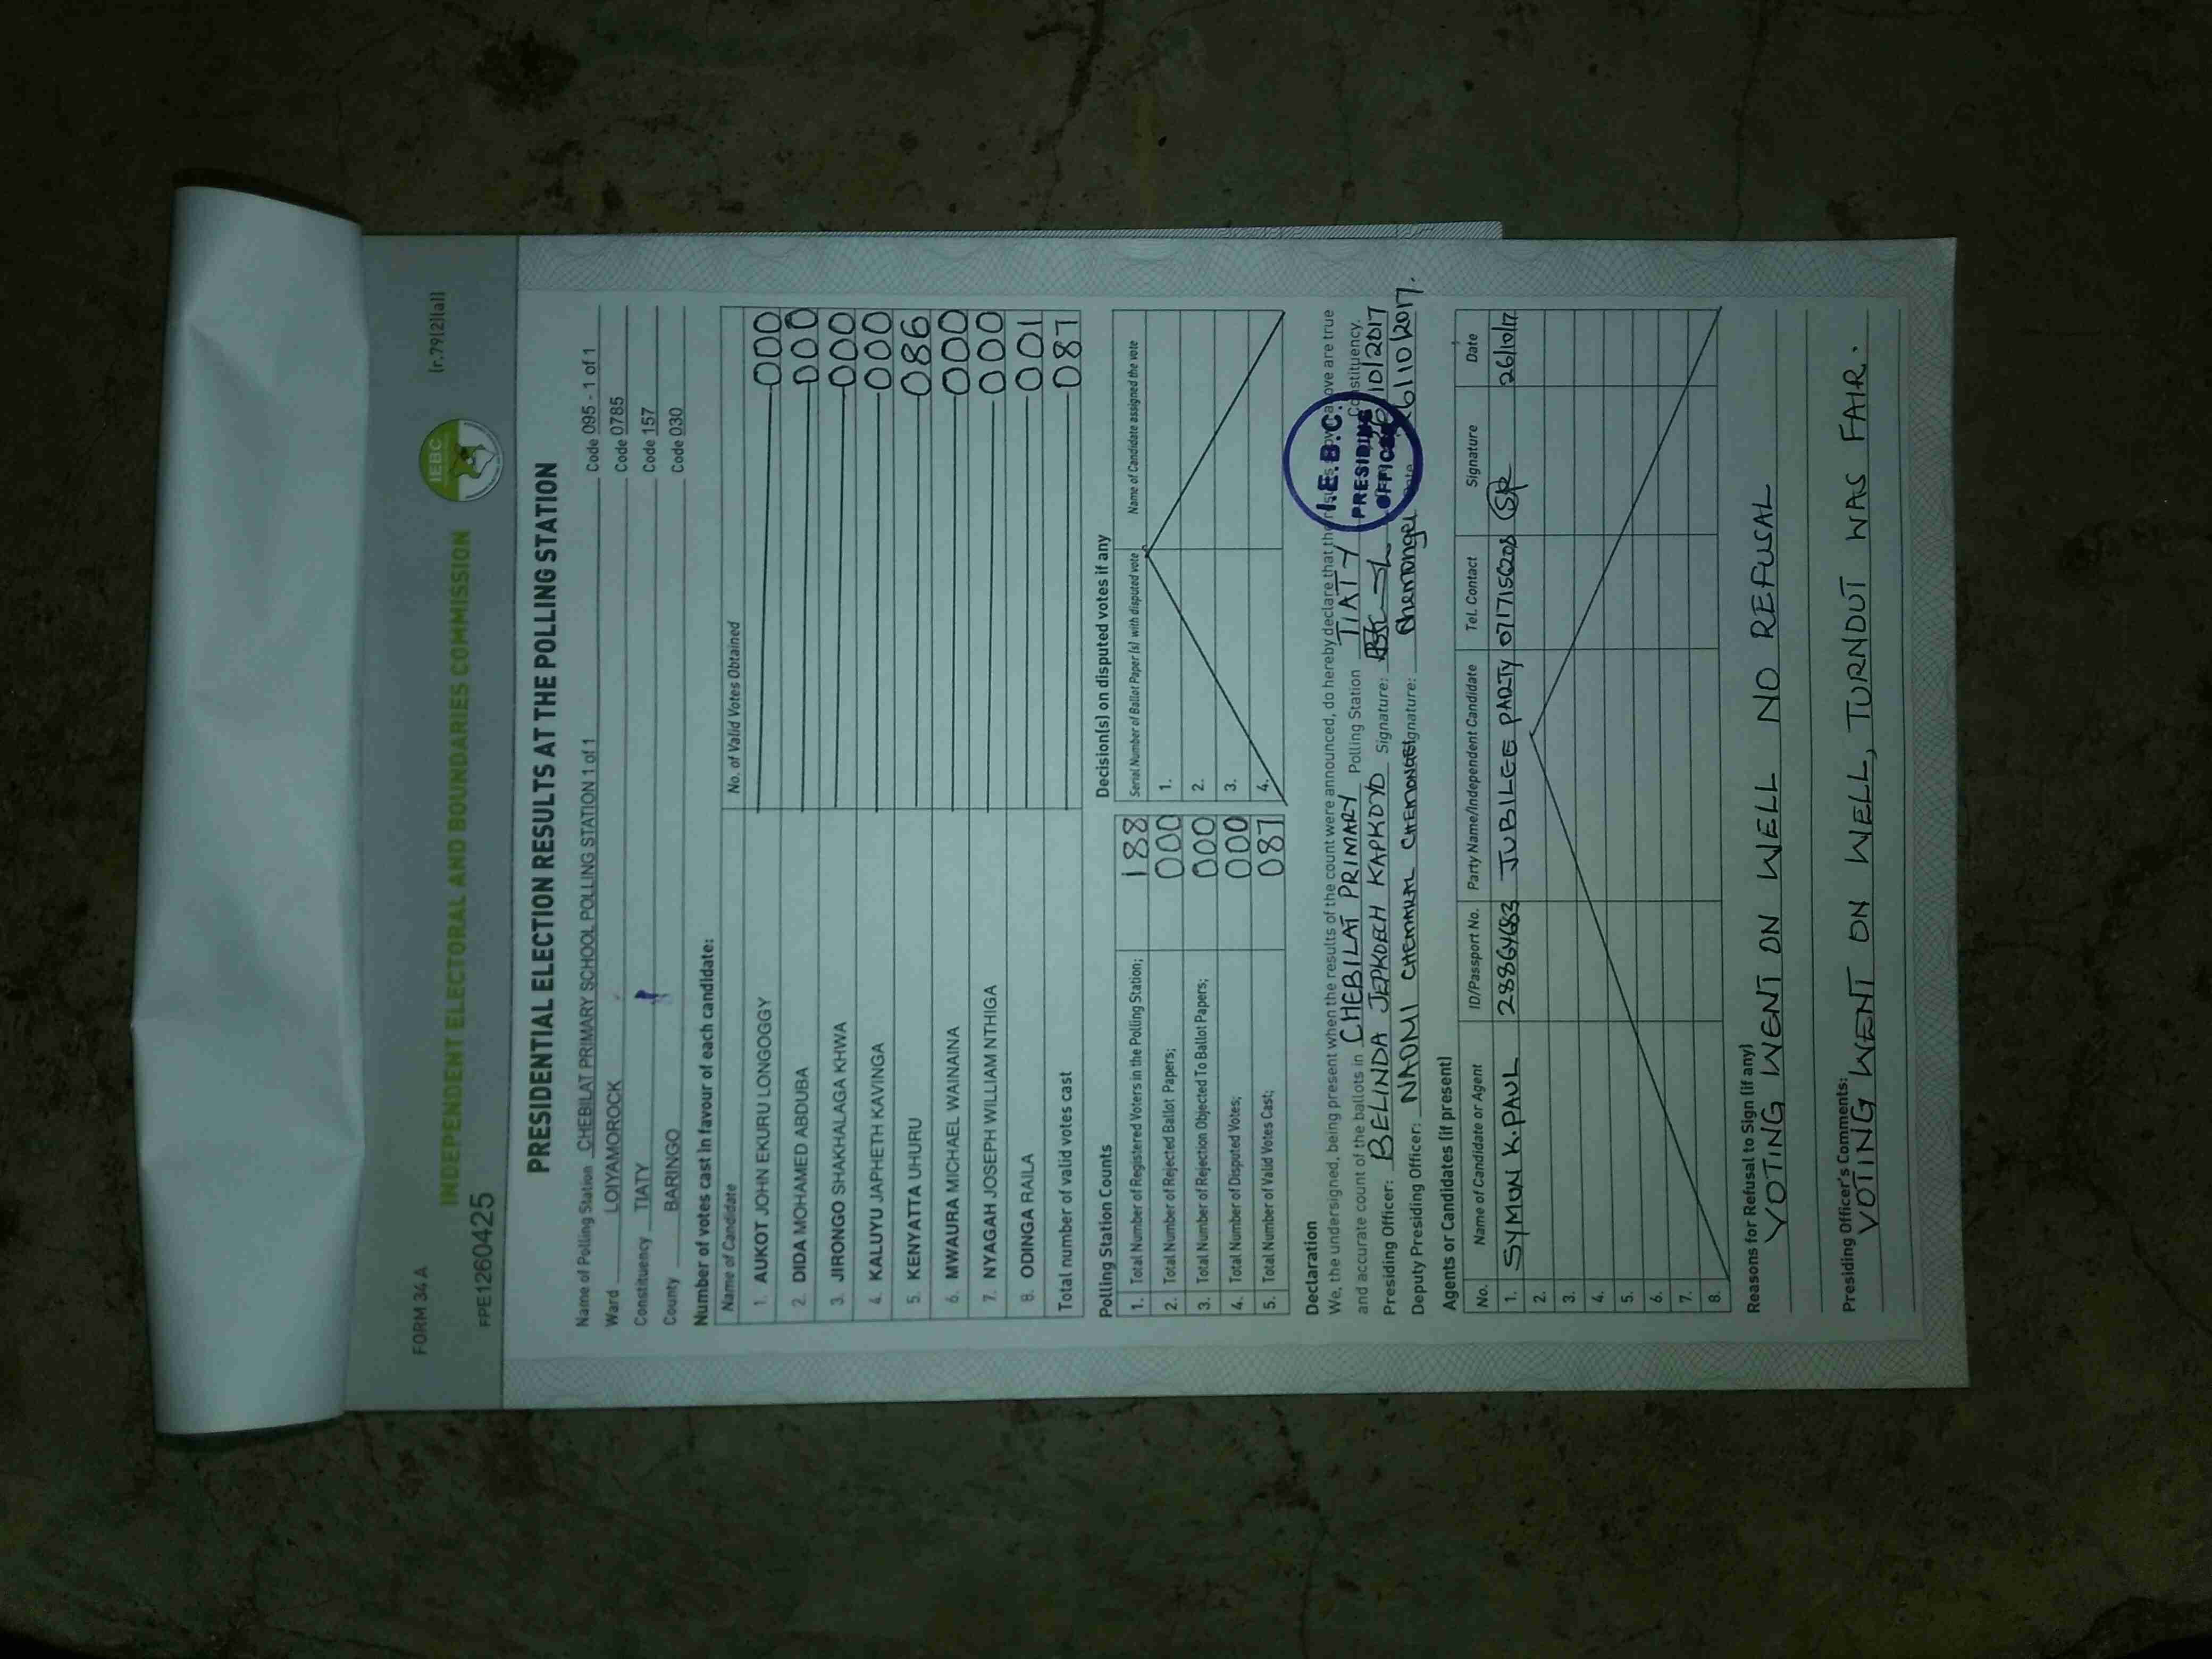 FORM 34 A
(r.79(2)(a))
INDEPENDENT ELECTORAL AND BOUNDARIES COMMISSION
IEBC
FPE1260425
PRESIDENTIAL ELECTION RESULTS AT THE POLLING STATION
Name of Polling Station CHEBILAT PRIMARY SCHOOL POLLING STATION 1 of 1 Code 095 - 1 of 1
Ward LOIYAMOROCK Code 0785
Constituency TIATY Code 157
County BARINGO Code 030
Number of votes cast in favour of each candidate:
Name of Candidate No. of Valid Votes Obtained
1. AUKOT JOHN EKURU LONGOGGY 000
2. DIDA MOHAMED ABDUBA 000
3. JIRONGO SHAKHALAGA KHWA 000
4. KALUYU JAPHETH KAVINGA 000
5. KENYATTA UHURU 086
6. MWAURA MICHAEL WAINAINA 000
7. NYAGAH JOSEPH WILLIAM NTHIGA 000
8. ODINGA RAILA 001
Total number of valid votes cast 087
Polling Station Counts
1. Total Number of Registered Voters in the Polling Station; 188
2. Total Number of Rejected Ballot Papers; 000
3. Total Number of Rejection Objected To Ballot Papers; 000
4. Total Number of Disputed Votes; 000
5. Total Number of Valid Votes Cast; 087
Decision(s) on disputed votes if any
Serial Number of Ballot Paper(s) with disputed vote Name of Candidate assigned the vote
1.
2.
3.
4.
Declaration
We, the undersigned, being present when the results of the count were announced, do hereby declare that the above are true
and accurate count of the ballots in CHEBILAT PRIMARY Polling Station TIATY Constituency.
Presiding Officer: BELINDA JEPKOECH KAPKOYO Signature: 10/2017
Deputy Presiding Officer: NAOMI CHEMONGES Signature: Chemonges 26/10/2017.
I.E.B.C.
PRESIDING
OFFICER
Agents or Candidates (if present)
No. Name of Candidate or Agent ID/Passport No. Party Name/Independent Candidate Tel. Contact Signature Date
1. SYMON K.PAUL JUBILEE PARTY 26/10/17
2.
3.
4.
5.
6.
7.
8.
Reasons for Refusal to Sign (if any)
VOTING WENT ON WELL NO REFUSAL
Presiding Officer's Comments:
VOTING WENT ON WELL, TURNOUT WAS FAIR.